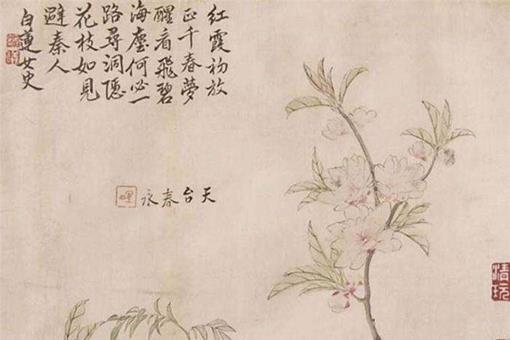 紅霞初放
正千春夢
醒看飛碧
海塵何必一
路尋洞隱
花枝如見
避秦人
白蓮女史
天台春永